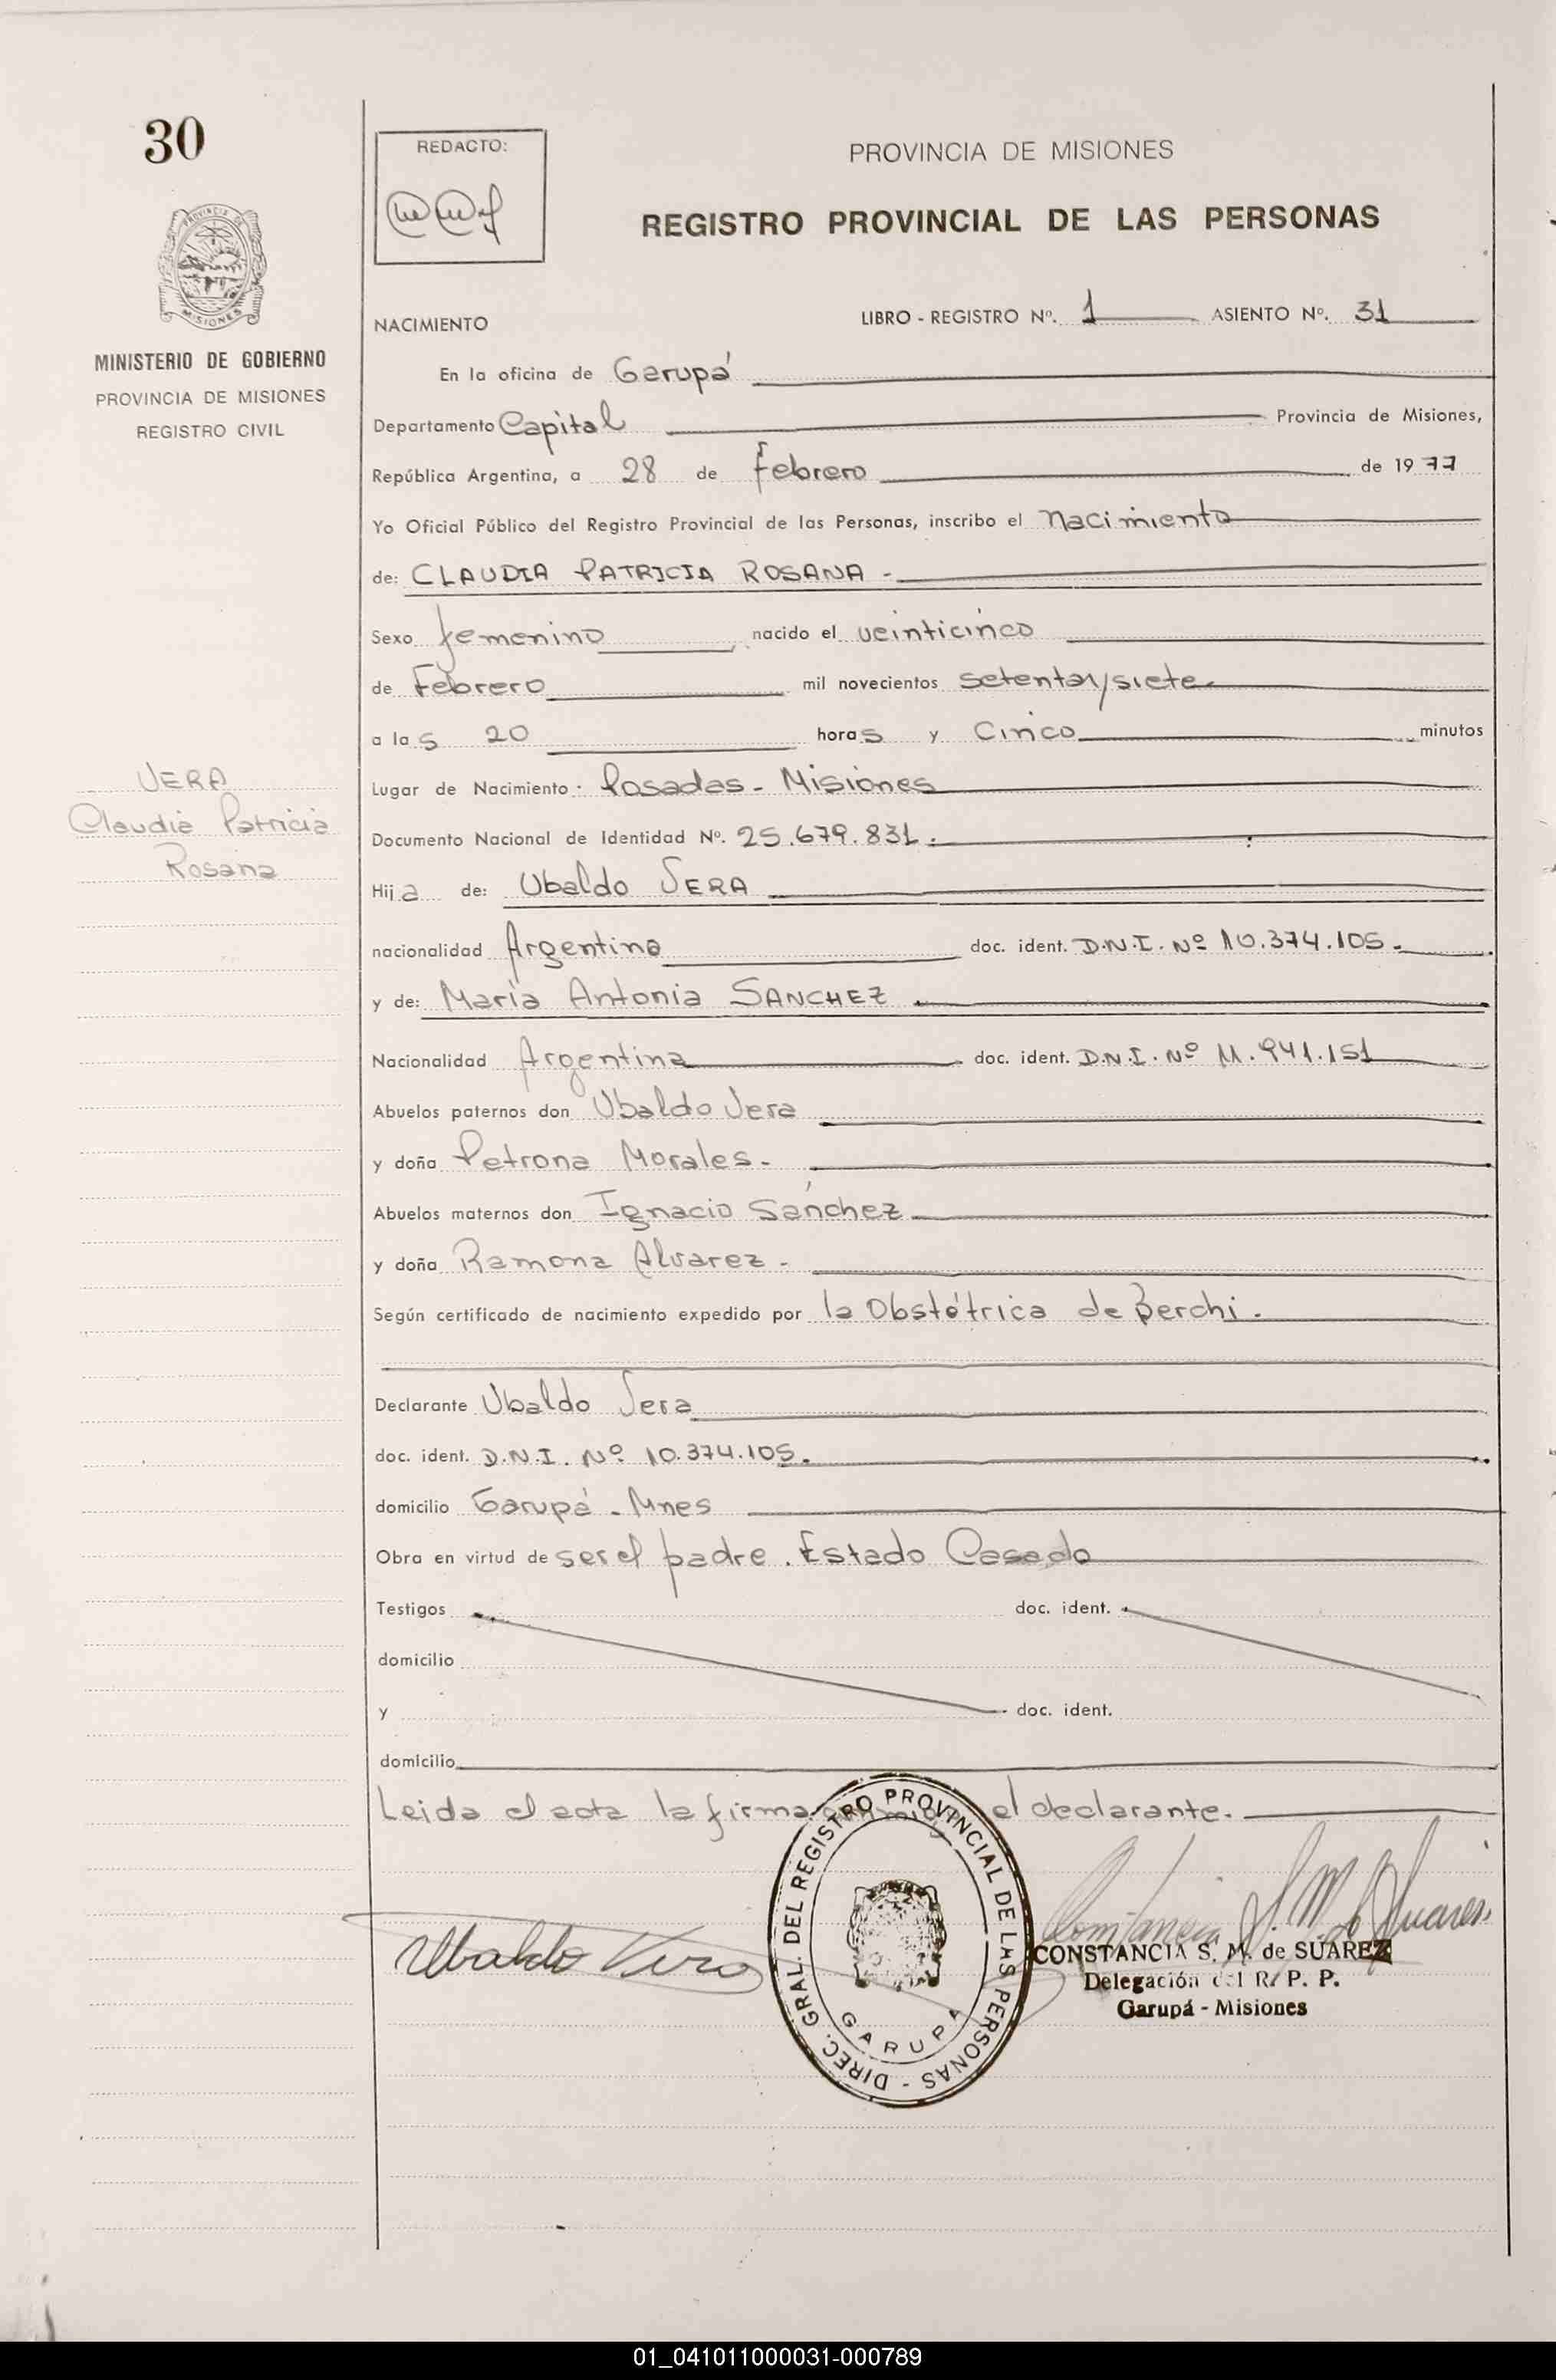 30
REDACTO:
PROVINCIA DE MISIONES
REGISTRO PROVINCIAL DE LAS PERSONAS
PROVINCIA DE
MISIONES
MINISTERIO DE GOBIERNO
PROVINCIA DE MISIONES
REGISTRO CIVIL
NACIMIENTO
LIBRO - REGISTRO Nº. 1 ASIENTO Nº. 31
En la oficina de Garupá
Departamento Capital Provincia de Misiones,
República Argentina, a 28 de febrero de 1977
Yo Oficial Público del Registro Provincial de las Personas, inscribo el nacimiento
de: CLAUDIA PATRICIA ROSANA -
Sexo femenino nacido el veinticinco
de Febrero mil novecientos setentaysiete
a las 20 horas y cinco minutos
VERA
Claudia Patricia
Rosana
Lugar de Nacimiento: Posadas - Misiones
Documento Nacional de Identidad Nº. 25.679.831.
Hija de: Ubaldo VERA
nacionalidad Argentina doc. ident. D.N.I. Nº 10.374.105.
y de: María Antonia SANCHEZ
Nacionalidad Argentina doc. ident. D.N.I. Nº 11.941.151
Abuelos paternos don Ubaldo Vera
y doña Petrona Morales.
Abuelos maternos don Ignacio Sánchez
y doña Ramona Alvarez -
Según certificado de nacimiento expedido por la Obstétrica de Berchi.
Declarante Ubaldo Vera
doc. ident. D.N.I. Nº 10.374.105.
domicilio Garupá - Mnes
Obra en virtud de ser el padre. Estado Casado
Testigos doc. ident.
domicilio
y doc. ident.
domicilio
Leida el acta la firma conmigo el declarante.
DIREC. GRAL. DEL REGISTRO PROVINCIAL DE LAS PERSONAS -
GARUPA
Ubaldo Vera
Constancia S. M. de Suarez
CONSTANCIA S. M. de SUAREZ
Delegación del R. P. P.
Garupá - Misiones
01_041011000031-000789